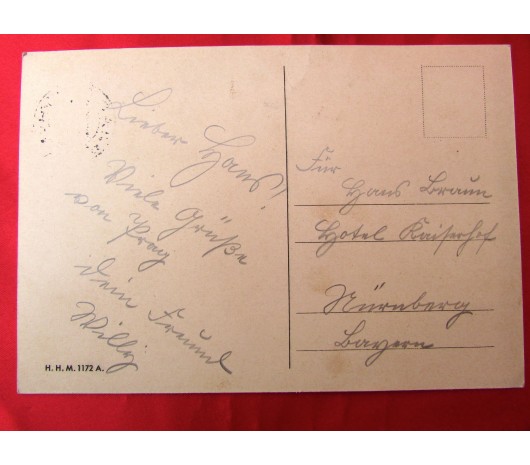 Lieber Hans!
Viele Grüße
von Prag
Dein Freund
Willy
H. H. M. 1172 A.
Für
Hans Braun
Hotel Kaiserhof
Nürnberg
Bayern